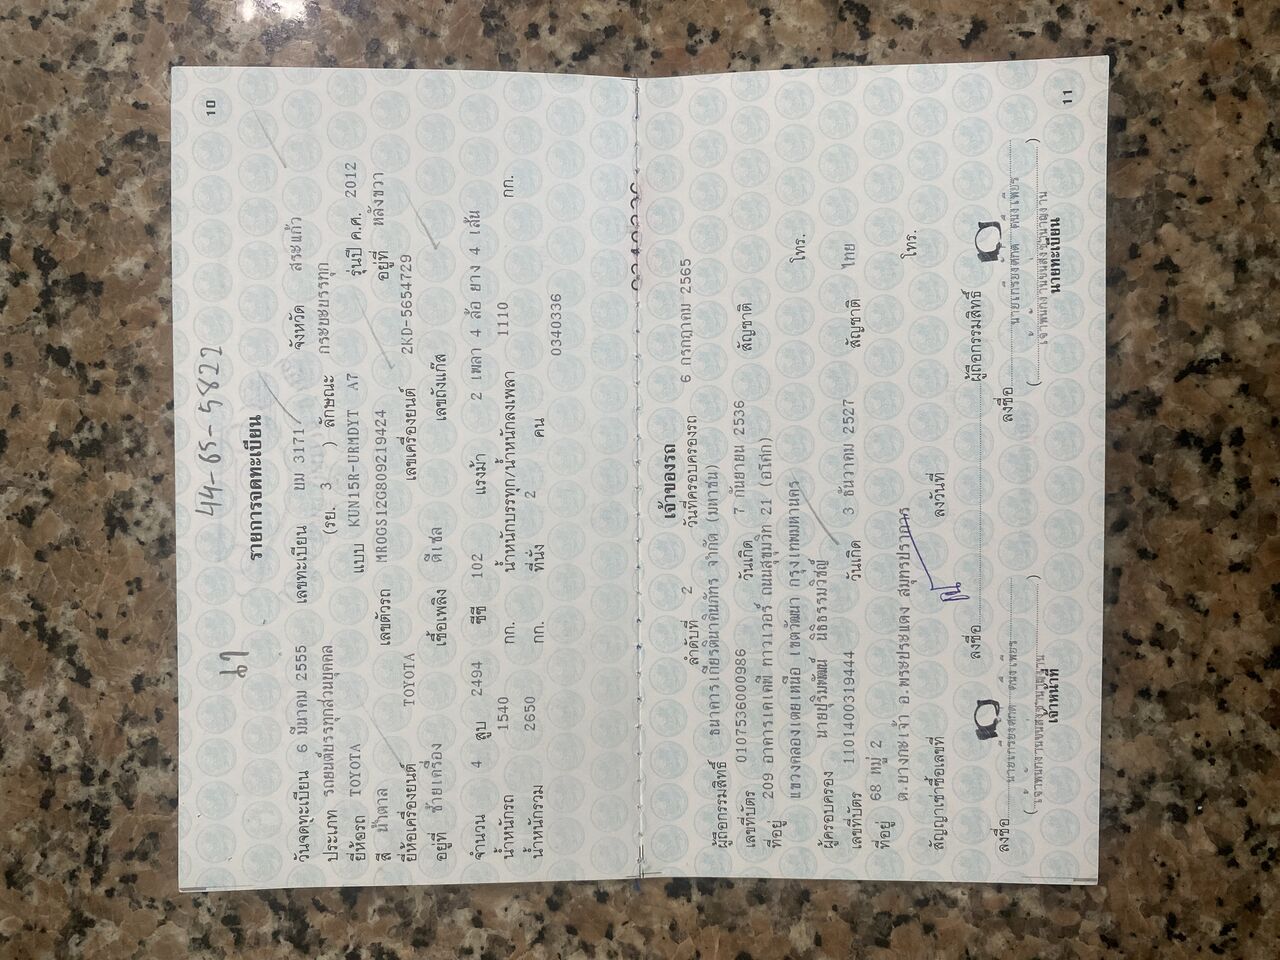 10
44-65-5822
รายการจดทะเบียน
วันจดทะเบียน 6 มีนาคม 2555 เลขทะเบียน ยม 3171 จังหวัด สระแก้ว
ประเภท รถยนต์บรรทุกส่วนบุคคล (รย. 3 ) ลักษณะ กระบะบรรทุก
ยี่ห้อรถ TOYOTA แบบ KUN15R-URMDYT A7 รุ่นปี ค.ศ. 2012
สี น้ำตาล เลขตัวรถ MR0GS12G809219424 อยู่ที่ หลังขวา
ยี่ห้อเครื่องยนต์ TOYOTA เลขเครื่องยนต์ 2KD-5654729
อยู่ที่ ซ้ายเครื่อง เชื้อเพลิง ดีเซล เลขถังแก๊ส
จำนวน 4 สูบ 2494 ซีซี 102 แรงม้า 2 เพลา 4 ล้อ ยาง 4 เส้น
น้ำหนักรถ 1540 กก. น้ำหนักบรรทุก/น้ำหนักลงเพลา 1110 กก.
น้ำหนักรวม 2650 กก. ที่นั่ง 2 คน
0340336
เจ้าของรถ
ลำดับที่ 2 วันที่ครอบครองรถ 6 กรกฎาคม 2565
ผู้ถือกรรมสิทธิ์ ธนาคารเกียรตินาคินภัทร จำกัด (มหาชน)
เลขที่บัตร 0107536000986 วันเกิด 7 กันยายน 2536 สัญชาติ
ที่อยู่ 209 อาคารเคเคพี ทาวเวอร์ ถนนสุขุมวิท 21 (อโศก)
แขวงคลองเตยเหนือ เขตวัฒนา กรุงเทพมหานคร โทร.
ผู้ครอบครอง นายปุริมพัฒน์ นิธิธรรมวิชญ์
เลขที่บัตร 1101400319444 วันเกิด 3 ธันวาคม 2527 สัญชาติ ไทย
ที่อยู่ 68 หมู่ 2
ต.บางกะเจ้า อ.พระประแดง สมุทรปราการ โทร.
สัญญาเช่าซื้อเลขที่ ลงวันที่
ลงชื่อ ผู้ถือกรรมสิทธิ์
ลงชื่อ ลงชื่อ
เจ้าหน้าที่ นายทะเบียน
11